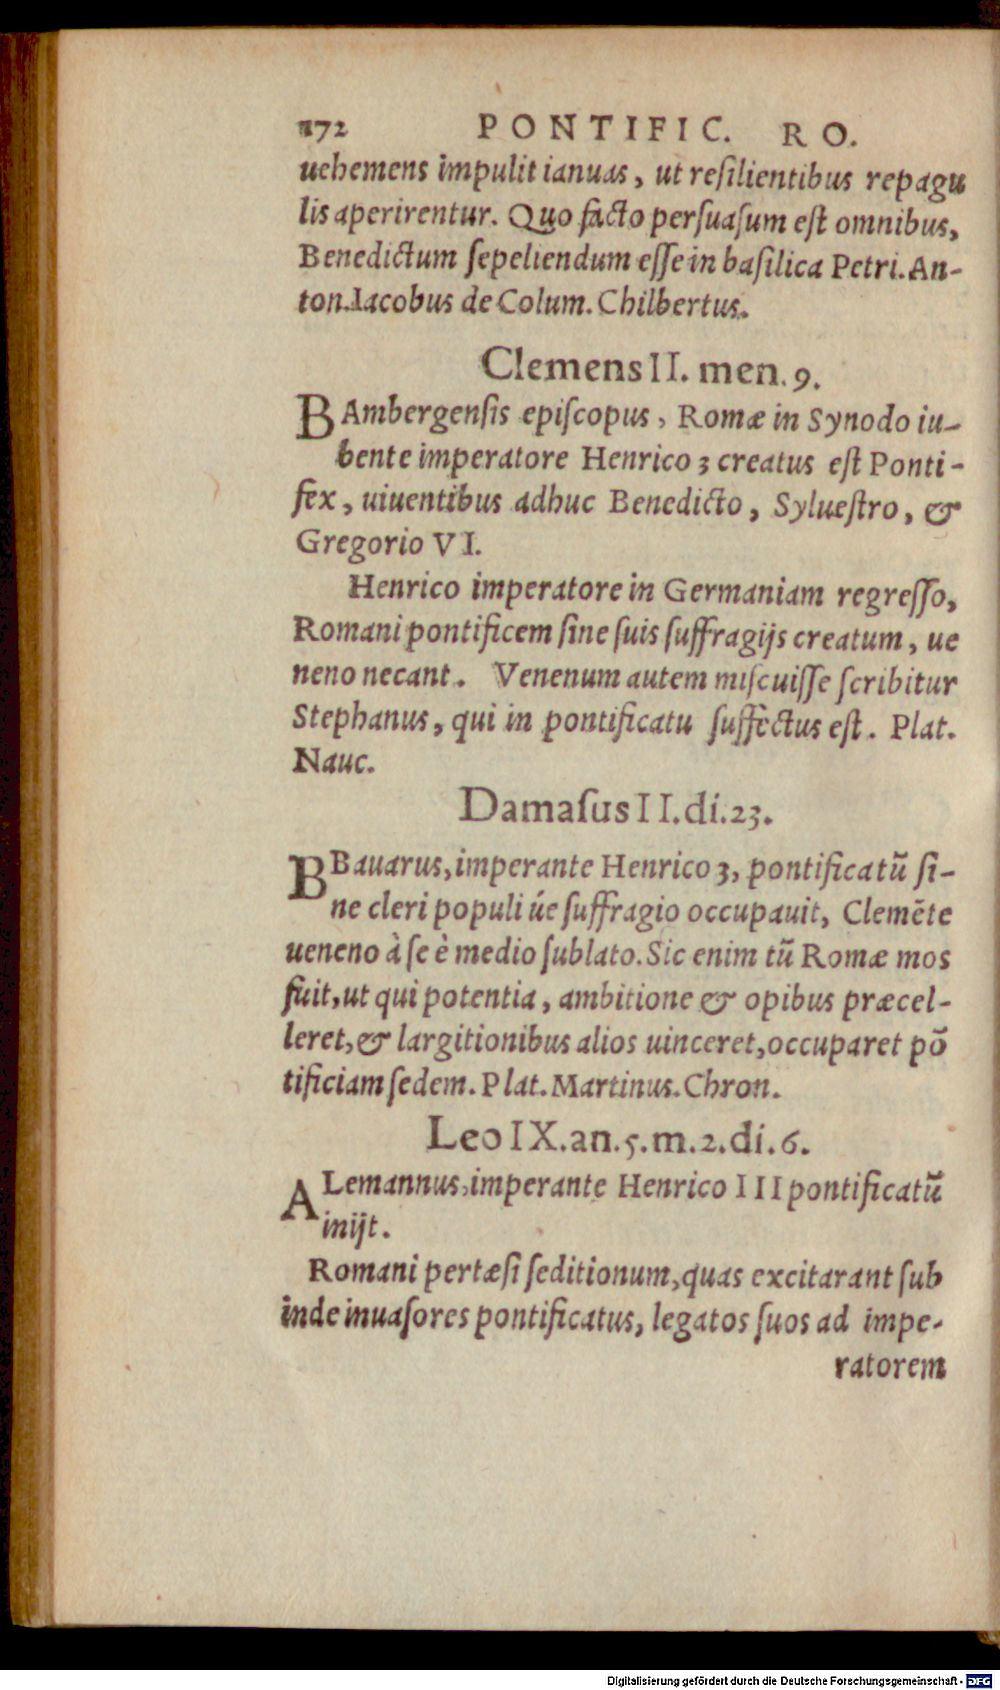 172 PONTIFIC. RO.
uehemens impulit ianuas, ut resilientibus repagu
lis aperirentur. Quo facto persuasum est omnibus,
Benedictum sepeliendum esse in basilica Petri. An-
ton. Iacobus de Colum. Chilbertus.
Clemens II. men. 9.
BAmbergensis episcopus, Romæ in Synodo iu-
bente imperatore Henrico 3 creatus est Ponti-
fex, uiuentibus adhuc Benedicto, Syluestro, &
Gregorio VI.
Henrico imperatore in Germaniam regresso,
Romani pontificem sine suis suffragijs creatum, ue
neno necant. Venenum autem miscuisse scribitur
Stephanus, qui in pontificatu suffectus est. Plat.
Nauc.
Damasus II. di. 23.
BBauarus, imperante Henrico 3, pontificatũ si-
ne cleri populi úe suffragio occupauit, Clemẽte
ueneno à se è medio sublato. Sic enim tũ Romæ mos
fuit, ut qui potentia, ambitione & opibus præcel-
leret, & largitionibus alios uinceret, occuparet põ
tificiam sedem. Plat. Martinus. Chron.
Leo IX. an. 5. m. 2. di. 6.
ALemannus, imperante Henrico III pontificatũ
inijt.
Romani pertæsi seditionum, quas excitarant sub
inde inuasores pontificatus, legatos suos ad impe-
ratorem
Digitalisierung gefördert durch die Deutsche Forschungsgemeinschaft - DFG